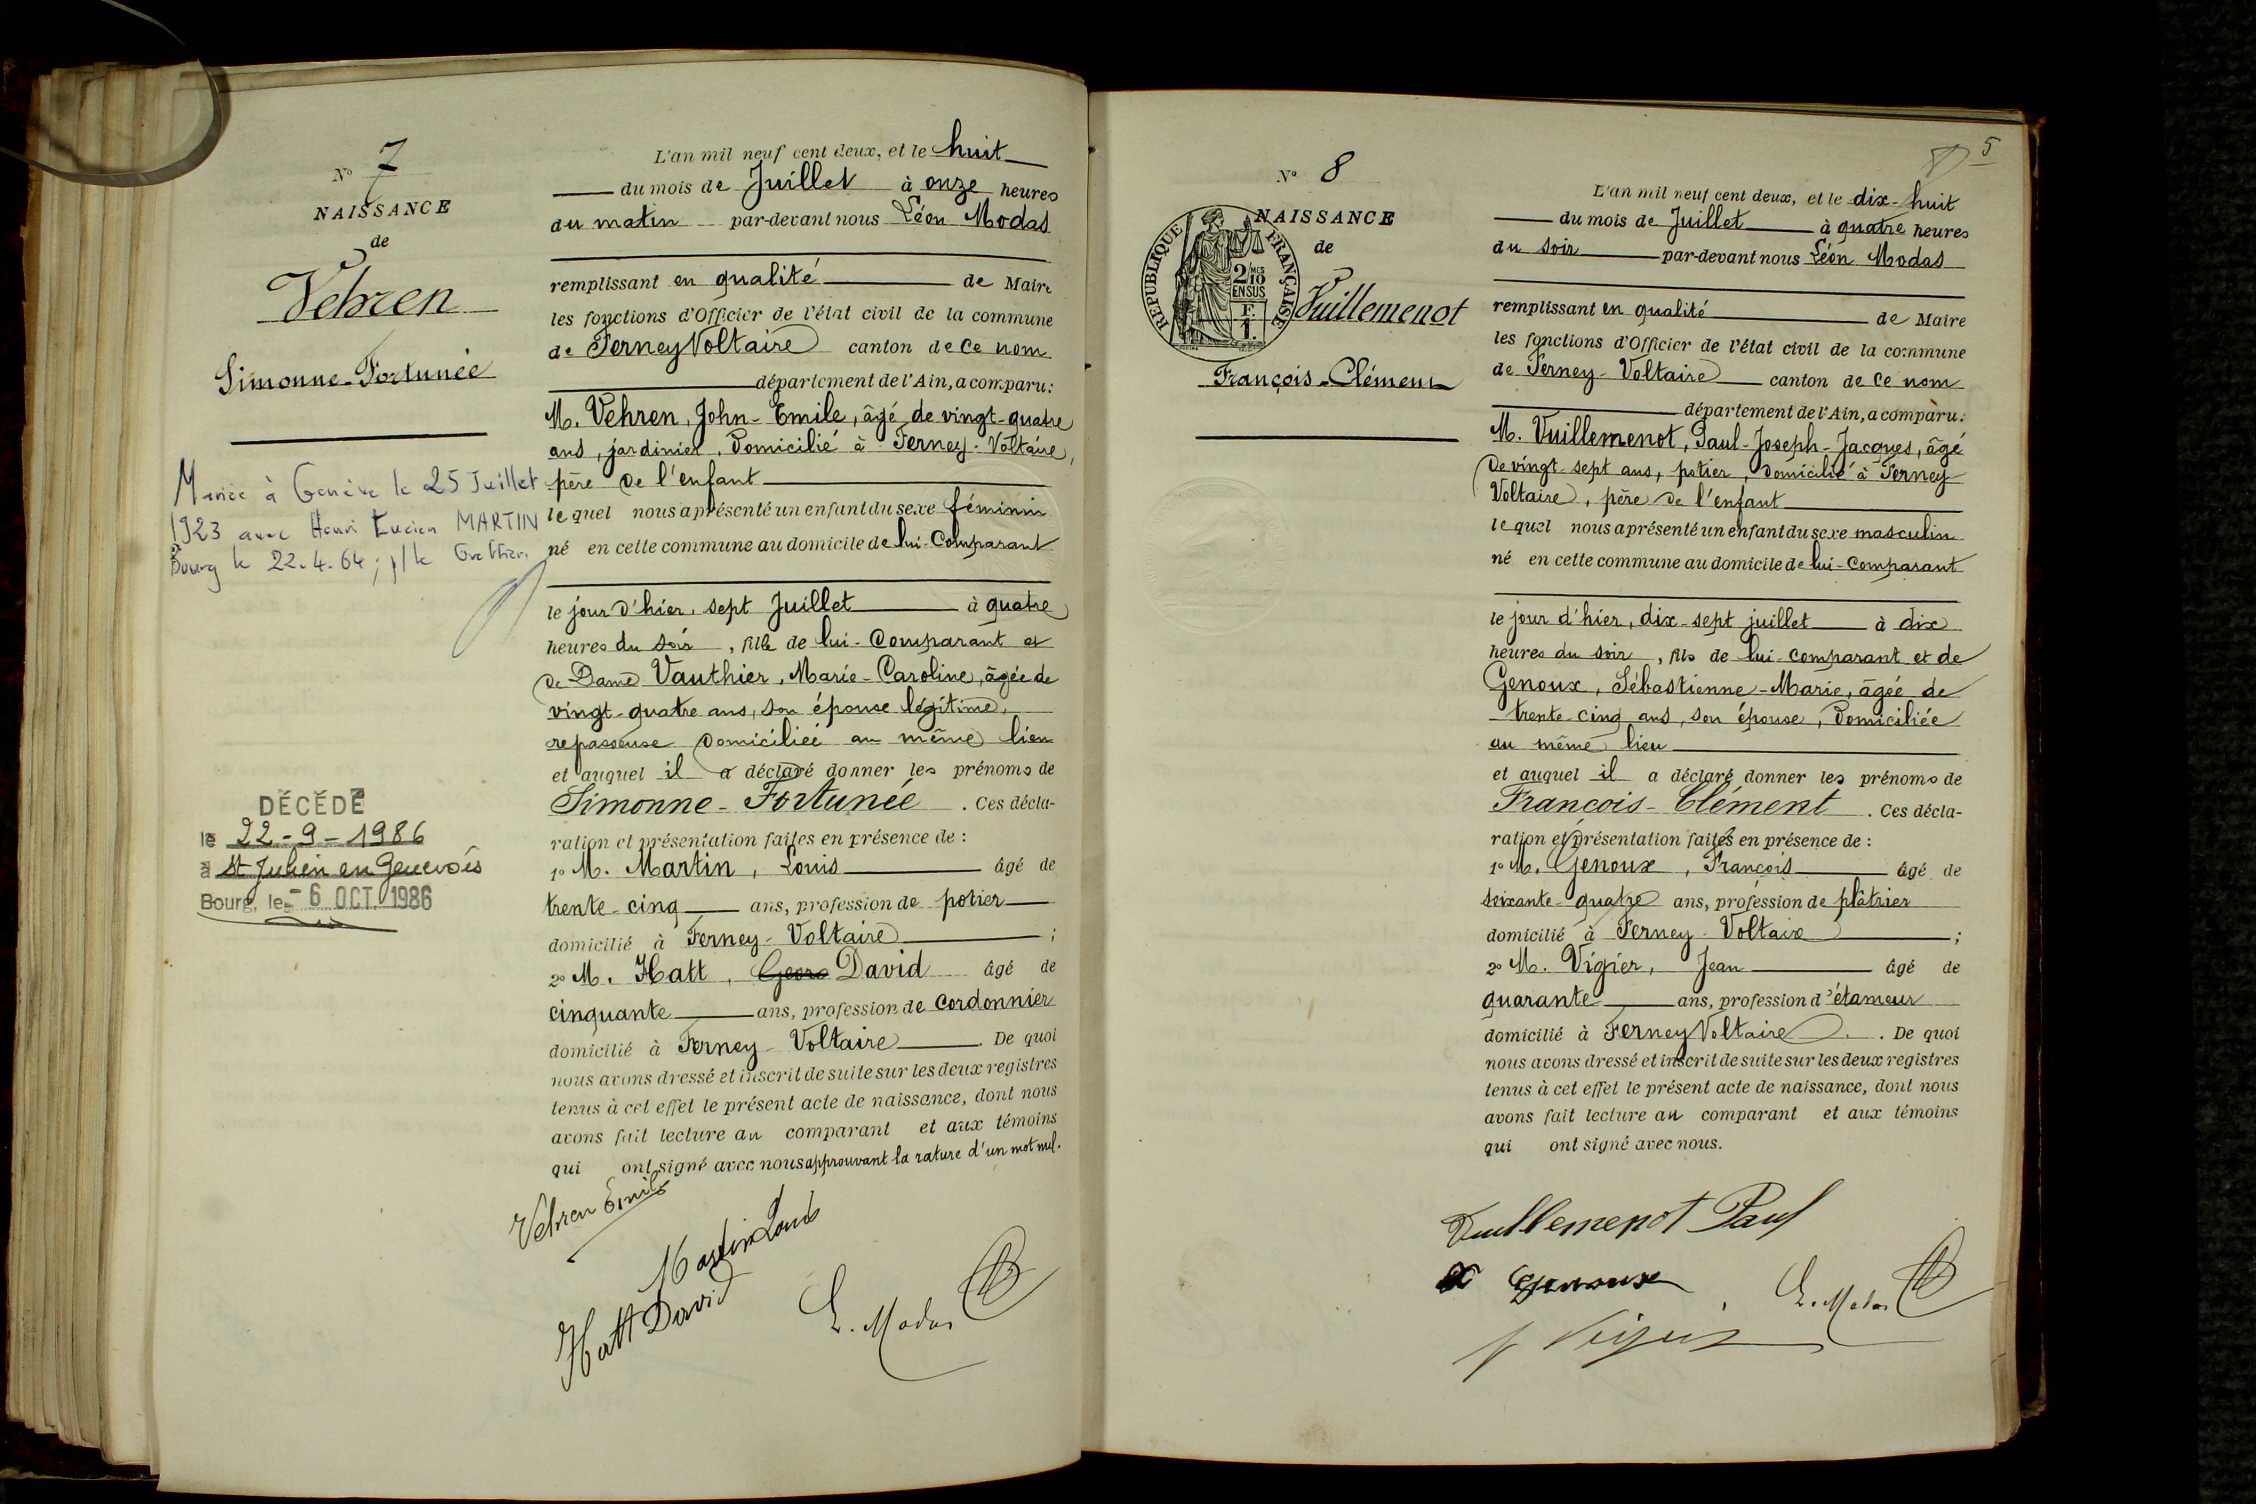 N° 7
NAISSANCE
de
Vehren
Simonne-Fortunée
Mariée à Genève le 25 Juillet
1923 avec Henri Lucien MARTIN
Bourg le 22.4.64; p/ le Greffier.
DÉCÉDÉ
le 22-9-1986
à St Julien en Genevois
Bourg, le -6 OCT. 1986
L'an mil neuf cent deux, et le huit
du mois de Juillet à onze heures
du matin par-devant nous Léon Modas
remplissant en qualité de Maire
les fonctions d'Officier de l'état civil de la commune
de Ferney Voltaire canton de ce nom
département de l'Ain, a comparu:
M. Vehren, John-Emile, âgé de vingt-quatre
ans, jardinier, domicilié à Ferney-Voltaire,
père de l'enfant
lequel nous a présenté un enfant du sexe féminin
né en cette commune au domicile de lui-Comparant
le jour d'hier, sept Juillet à quatre
heures du soir, fille de lui-Comparant et
de Dame Vauthier, Marie-Caroline, âgée de
vingt-quatre ans, son épouse légitime,
repasseuse domiciliée au même lieu
et auquel il a déclaré donner les prénoms de
Simonne-Fortunée. Ces décla-
ration et présentation faites en présence de :
1° M. Martin, Louis âgé de
trente-cinq ans, profession de potier
domicilié à Ferney-Voltaire ;
2° M. Hatt, Geors David âgé de
cinquante ans, profession de Cordonnier
domicilié à Ferney-Voltaire. De quoi
nous avons dressé et inscrit de suite sur les deux registres
tenus à cet effet le présent acte de naissance, dont nous
avons fait lecture au comparant et aux témoins
qui ont signé avec nous approuvant la rature d'un mot nul.
Vehren Emile
Martin Louis
Hatt David
L. Modas
5
N° 8
NAISSANCE
de
RÉPUBLIQUE FRANÇAISE
2/10 MES
EN SUS
1 F.
Vuillemenot
François-Clément
L'an mil neuf cent deux, et le dix-huit
du mois de Juillet à quatre heures
du soir par-devant nous Léon Modas
remplissant en qualité de Maire
les fonctions d'Officier de l'état civil de la commune
de Ferney-Voltaire canton de ce nom
département de l'Ain, a comparu:
M. Vuillemenot, Paul-Joseph-Jacques, âgé
de vingt-sept ans, potier, domicilié à Ferney
Voltaire, père de l'enfant
lequel nous a présenté un enfant du sexe masculin
né en cette commune au domicile de lui-Comparant
le jour d'hier, dix-sept juillet à dix
heures du soir, fils de lui-comparant et de
Genoux, Sébastienne-Marie, âgée de
trente-cinq ans, son épouse, domiciliée
au même lieu
et auquel il a déclaré donner les prénoms de
François-Clément. Ces décla-
ration et présentation faites en présence de :
1° M. Genoux, François âgé de
soixante-quatre ans, profession de plâtrier
domicilié à Ferney-Voltaire ;
2° M. Vigier, Jean âgé de
quarante ans, profession d'étameur
domicilié à Ferney Voltaire. De quoi
nous avons dressé et inscrit de suite sur les deux registres
tenus à cet effet le présent acte de naissance, dont nous
avons fait lecture au comparant et aux témoins
qui ont signé avec nous.
Vuillemenot Paul
Genoux
L. Modas
Vigier